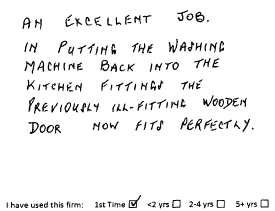 AN EXCELLENT JOB.
IN PUTTING THE WASHING
MACHINE BACK INTO THE
KITCHEN FITTINGS THE
PREVIOUSLY ILL-FITTING WOODEN
DOOR NOW FITS PERFECTLY.
I have used this firm: 1st Time ☑ <2 yrs ☐ 2-4 yrs ☐ 5+ yrs ☐